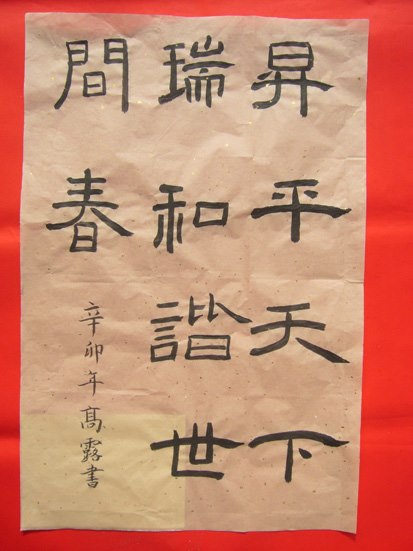 昇平天下
瑞和諧世
間春
辛卯年髙露書